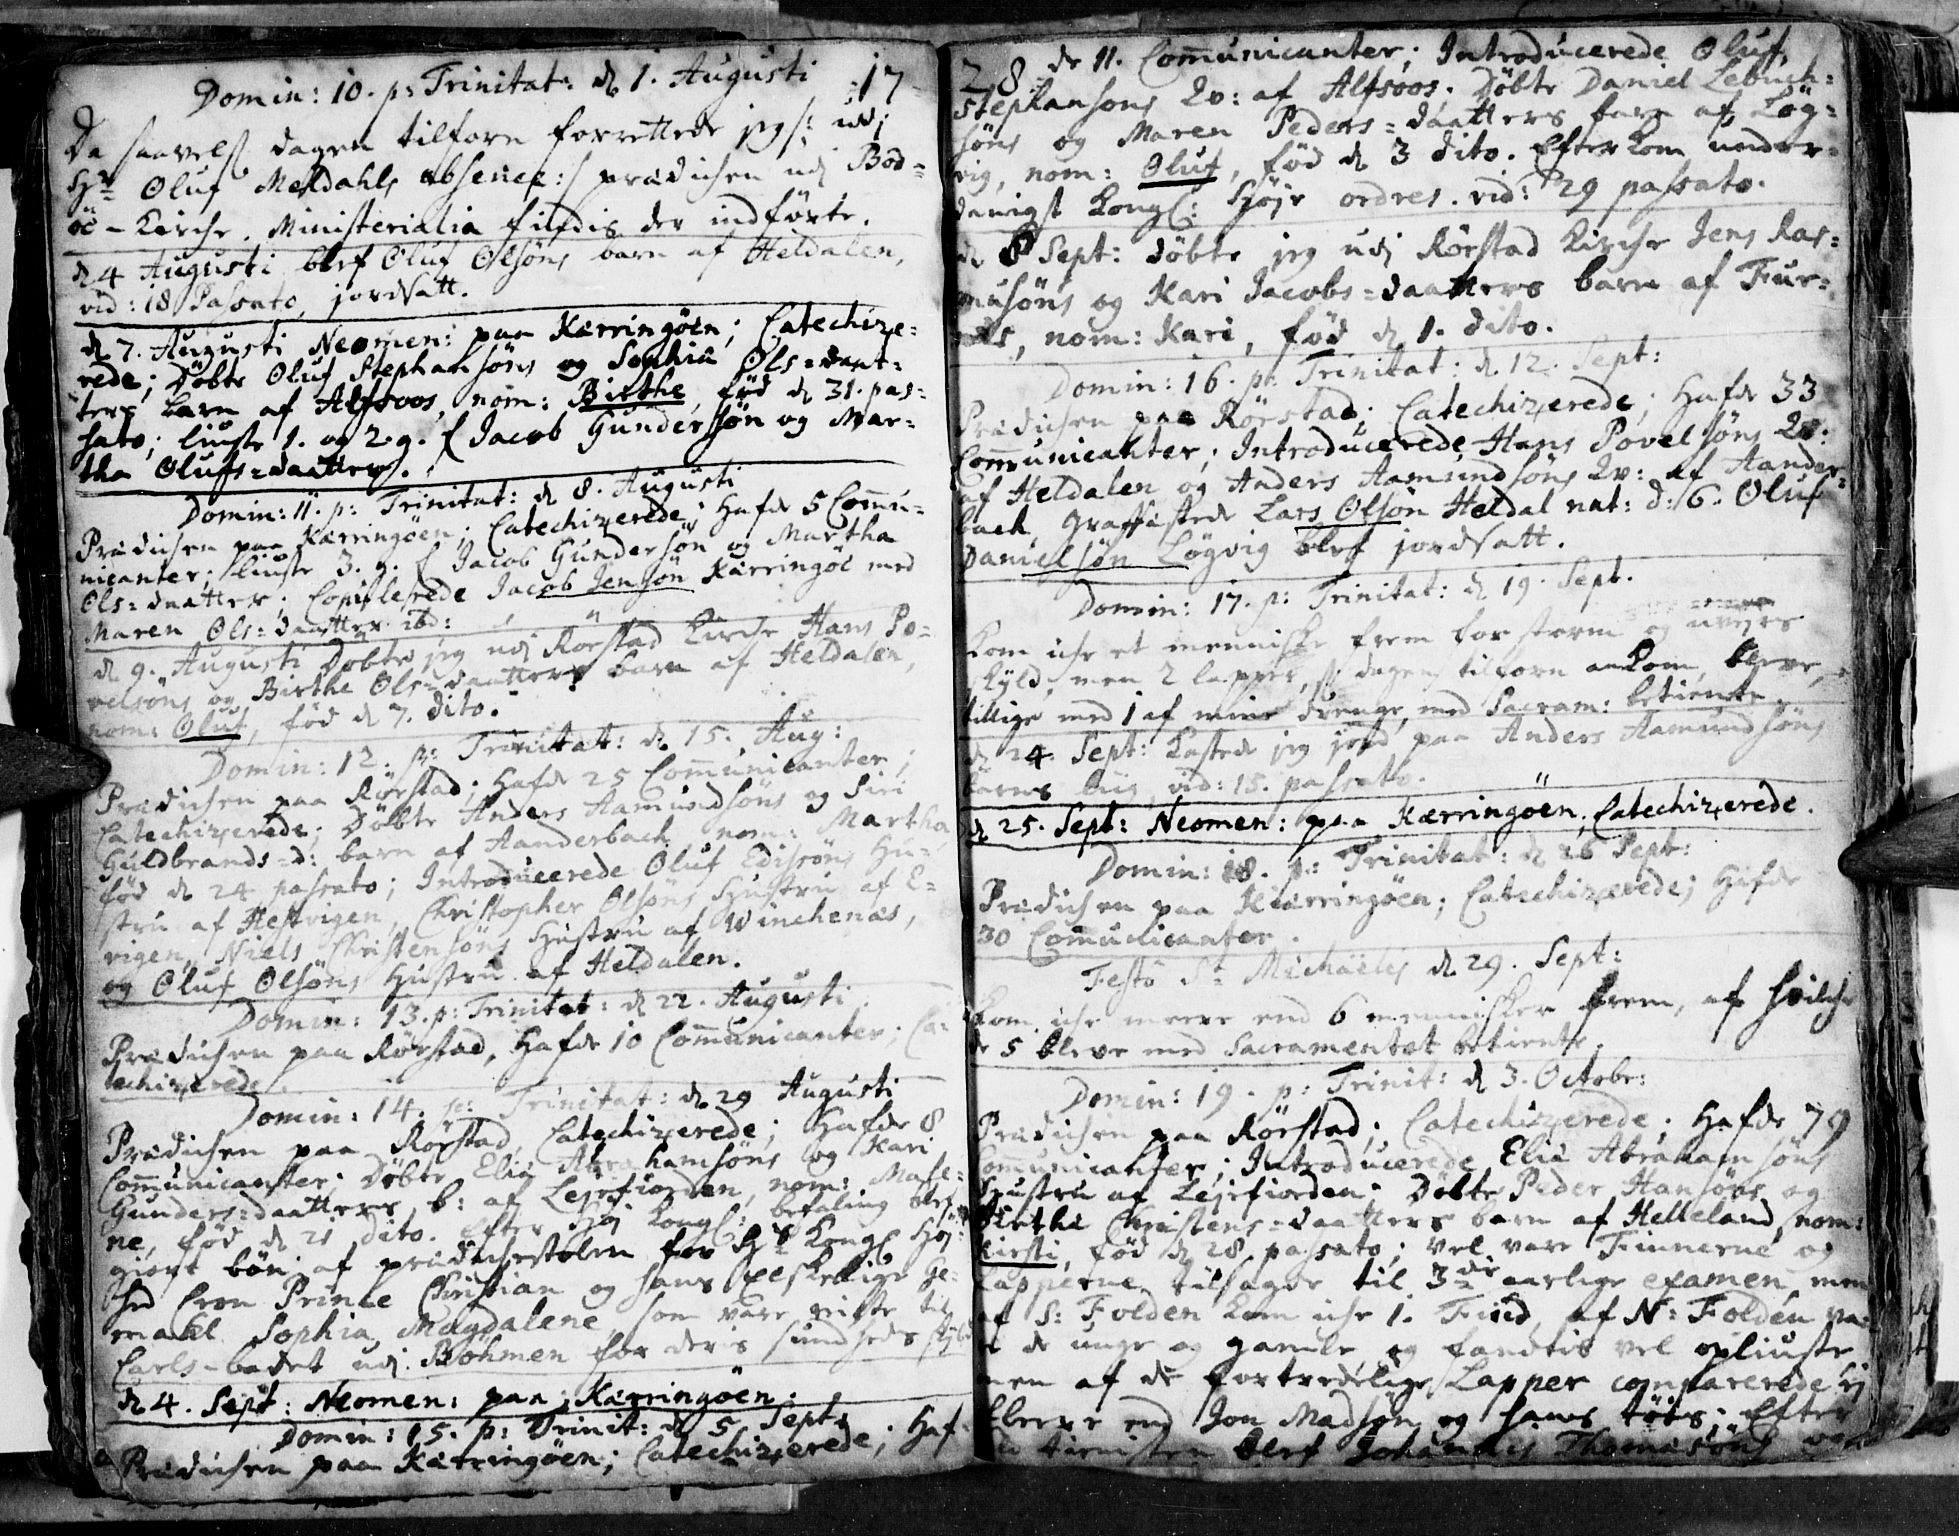 Domin: 10. p: Trinitat: d. 1. Augusti 17
Da saavelsom dagen tilforn forrettede jeg /: udj
Hr Oluf Meldahls absence :/ prædichen udj Bod-
öe-Kirche. Ministerialia findis der indförte.
d. 4 Augusti blef Oluf Olsöns barn af Heldalen,
vid: 18 Passato, jordsatt.
d. 7. Augusti Neomen: paa Kærringöen; Catechize-
rede; Döbte Oluf Stephansöns og Sophia Ols=daat-
ters barn af Alfsoos, nom: Birthe, föd d. 31. pas-
sato; liuste 1. og 2. g. f Jacob Gundersön og Mar-
tha Olufs=daatter.
Domin: 11. p: Trinitat: d. 8. Augusti
Prædichen paa Kærringöen; Catechizerede; Hafde 5 Commu-
nicanter; liuste 3. g. f Jacob Gundersön og Martha
Ols=daatter; Copulerede Jacob Jensön Kærringöe med
Maren Ols=daatter ibd:
d. 9. Augusti Döbte jeg udj Rörstad Kirche Hans Po-
velsöns og Birthe Ols=daatters barn af Heldalen,
nom: Oluf, föd d. 7. dito.
Domin: 12. p: Trinitat: d. 15. Aug:
Prædichen paa Rörstad; Hafde 25 Communicanter;
Catechizerede; Döbte Anders Aamundsöns og Siri
Guldbrands=d: barn af Aanderbach, nom: Martha,
föd d. 24 passato; Introducerede Oluf Edissöns Hu-
stru af Hestvigen, Christopher Olsöns Hustru af E-
vigen, Niels Christensöns Hustru af Winchenæs,
og Oluf Olsöns Hustru af Heldalen.
Domin: 13. p: Trinitat: d. 22. Augusti
Prædichen paa Rörstad, Hafde 10 Communicanter; Ca-
techizerede.
Domin: 14. p: Trinitat: d. 29 Augusti
Prædichen paa Rörstad, Catechizerede; Hafde 8
Communicanter; Döbte Eliæ Abrahamsöns og Kari
Gunders=daatters b: af Lejrfiorden, nom: Male-
ne, föd d. 21 dito. Efter Höj Kongl: befaling blef
giort bön af prædichestolen for Hs Kongl Höj-
hed Cron Prince Christian og hans Elskelige Ge-
mahl Sophia Magdalene, som vare reiste til
Carls-badet udj Böhmen for deris sundheds skyld
d. 4. Sept: Neomen: paa Kærringöen.
Domin: 15. p: Trinit: d. 5. Sept:
Prædichen paa Kærringöen; Catechizerede; Haf-
28 de 11. Communicanter; Introducerede Oluf
Stephansöns Qv: af Alfsoos. Döbte Daniel Lebuch-
söns og Maren Peders=daatters barn af Lög-
vig, nom: Oluf, föd d. 3 dito. Efterkom under-
danigst Kongl: Höje ordres. vid: 29 passato.
d. 8 Sept: döbte jeg udj Rörstad Kirche Jens Ras-
musöns og Kari Jacobs=daatters barn af Fur-
næs, nom: Kari, föd d. 1. dito.
Domin: 16. p: Trinitat: d. 12. Sept:
Prædichen paa Rörstad; Catechizerede; Hafde 33
Communicanter; Introducerede Hans Povelsöns Qv:
af Heldalen og Anders Aamundsöns Qv: af Aander-
bach. Graffæstede Lars Olsön Heldal nat: d: 6. Oluf
Danielsön Lögvig blef jordsatt.
Domin: 17. p: Trinitat: d. 19. Sept.
Kom iche et menniske frem for storm og uvejrs
skyld, men 2 lapper, dagen tilforn ankom, bleve,
tillige med 1 af mine drenge, med Sacram: betiente.
d. 24. Sept: Kastede jeg jord paa Anders Aamundsöns
barns liig, vid: 15. passato.
d. 25. Sept: Neomen: paa Kærringöen, Catechizerede.
Domin: 18. p: Trinitat: d. 26 Sept:
Prædichen paa Kiærringöen; Catechizerede; Hafde
30 Communicanter.
Festo St Michäelis d. 29. Sept:
Kom iche meere end 6 mennisker frem, af hvilche
de 5 bleve med Sacramentet betiente.
Domin: 19. p: Trinit: d. 3. Octobr:
Prædichen paa Rörstad; Catechizerede; Hafde 79
Communicanter; Introducerede Eliæ Abrahamsöns
Hustru af Lejrfiorden; Döbte Peder Hansöns og
Birthe Christens=daatters barn af Helleland, nom:
Kirsti, föd d. 28. passato; Vel vare Finnerne og
Lapperne tilsagde til 3die aarlige examen, men
af S: Folden kom iche 1. Find, af N: Folden va-
re de unge og gamle og fandtis vel opliuste,
men af de fortredelige Lapper comparerede ej
fleere end Jon Madsön og hans ; Efter
tienisten blef Johannis Thomæsöns